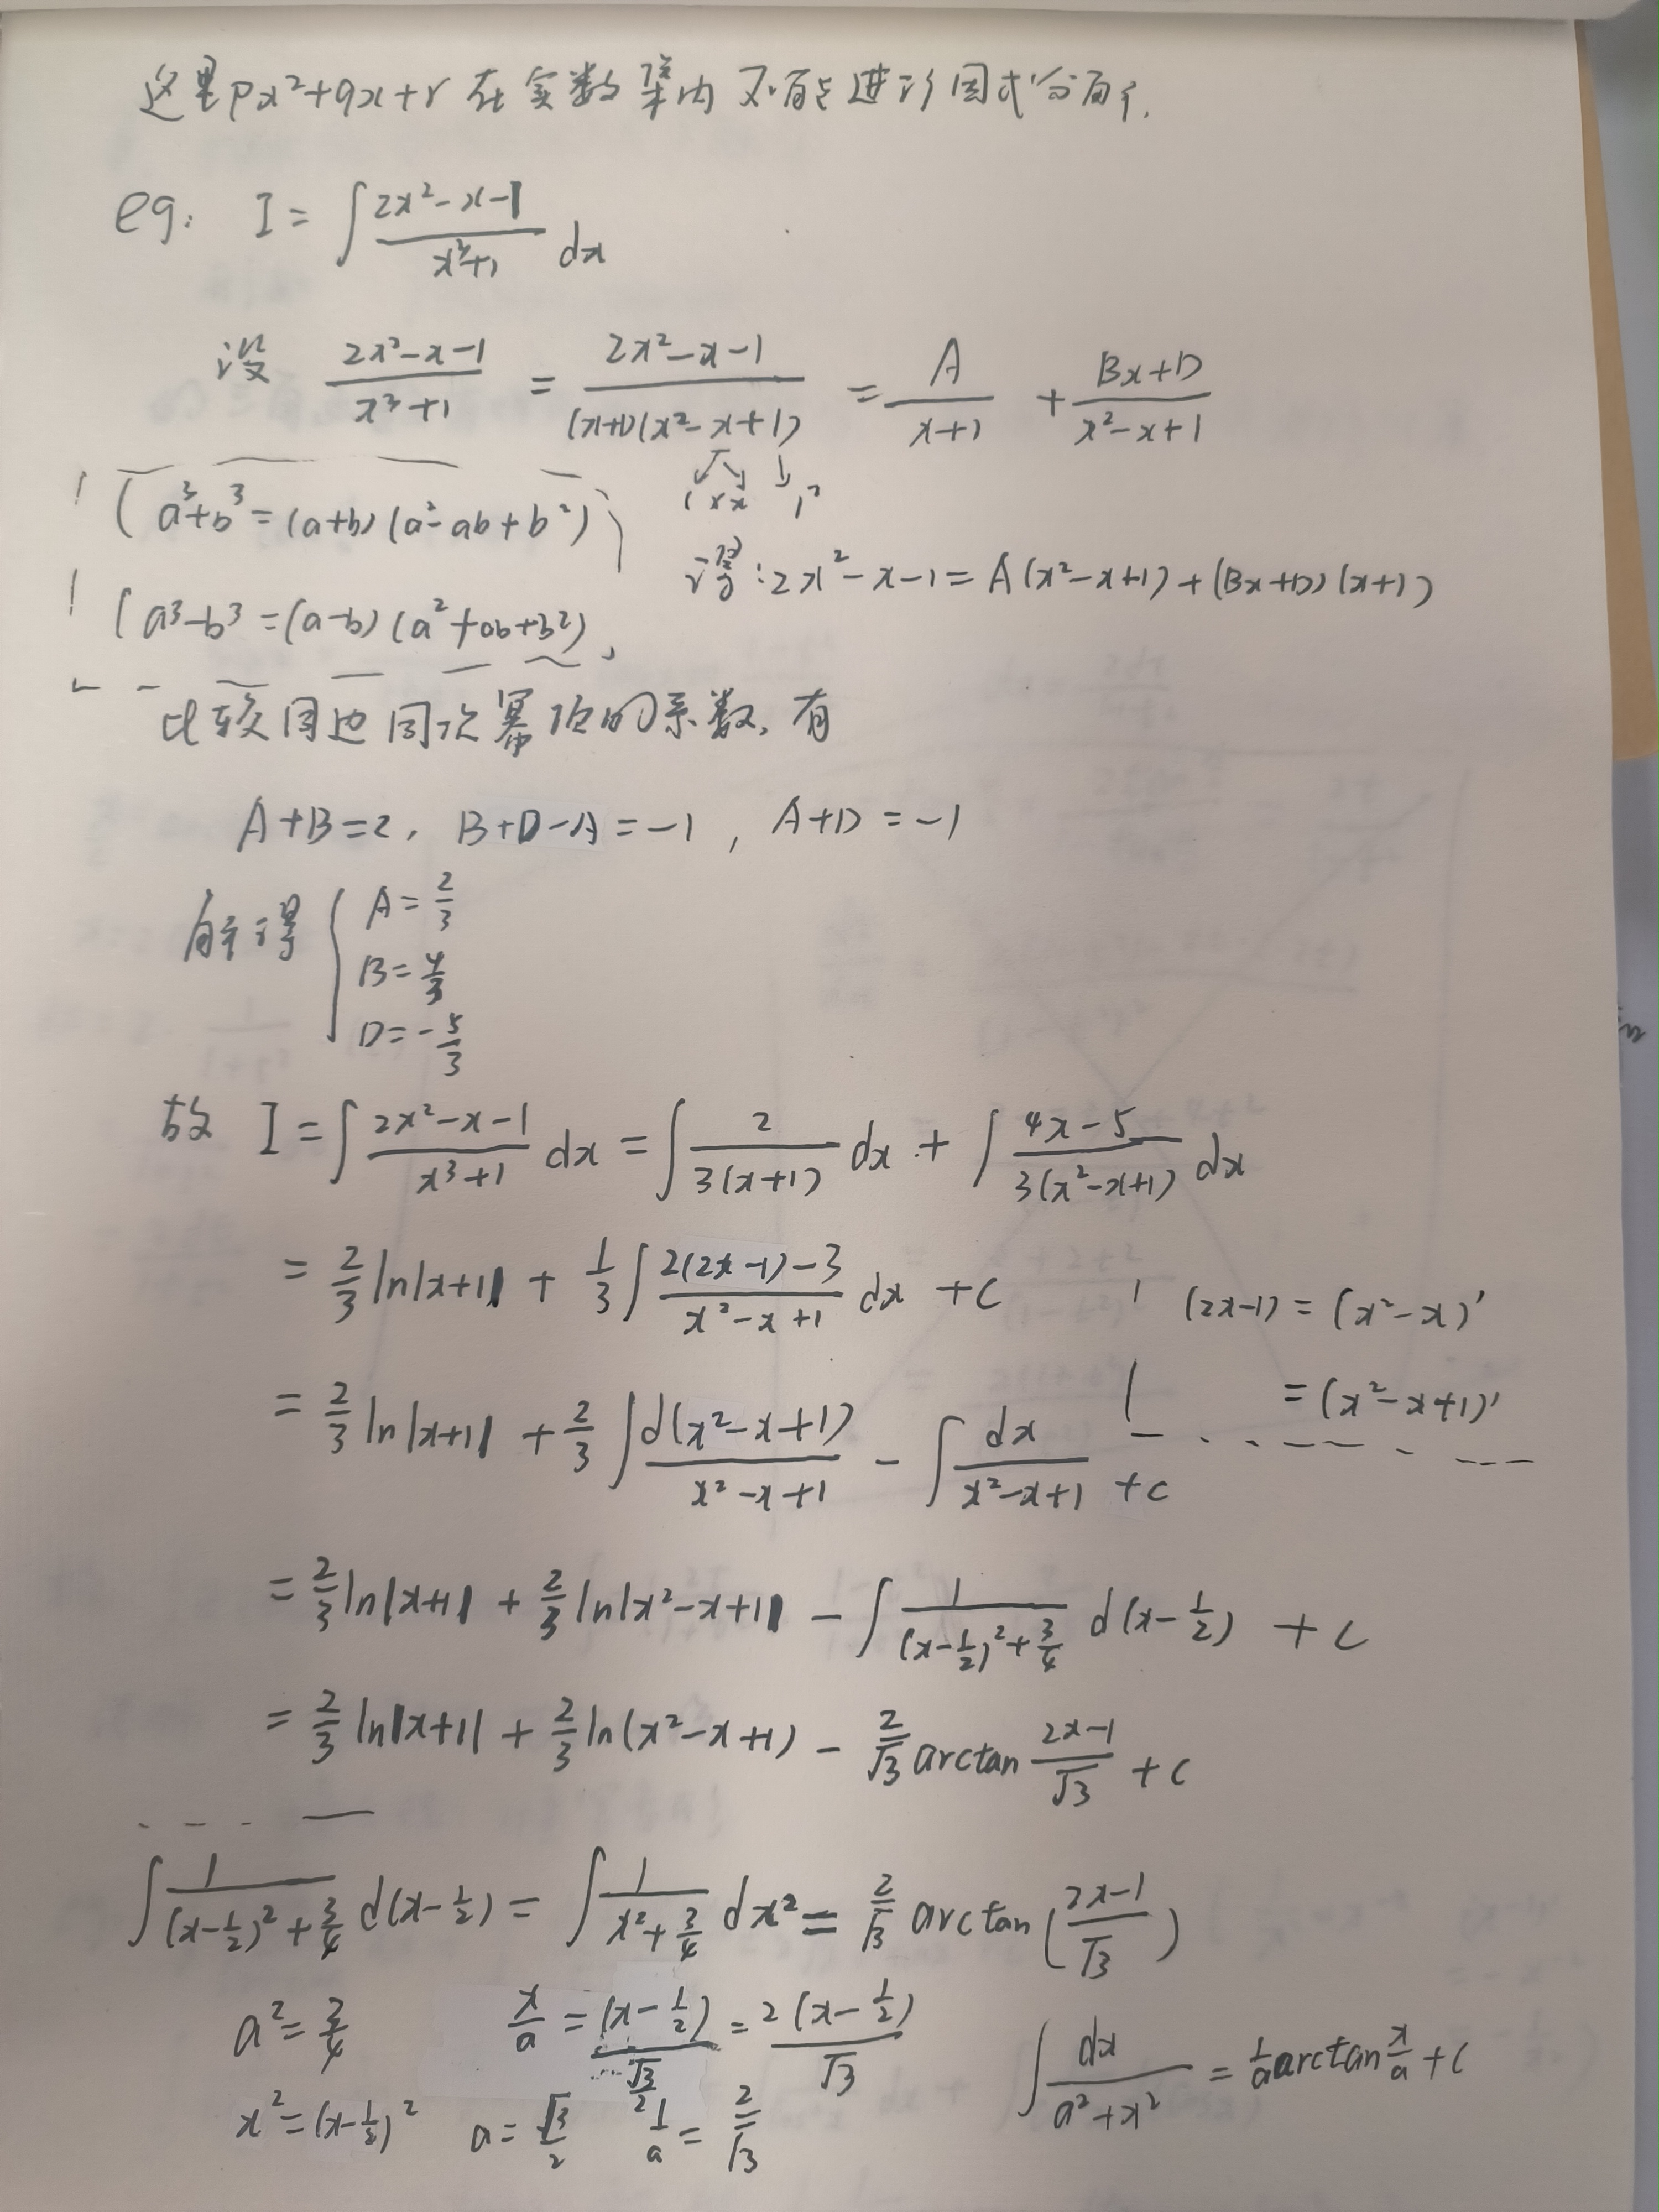 这里px²+qx+r在实数集内不能进行因式分解.
eg: I = ∫ (2x²-x-1)/(x³+1) dx
设 (2x²-x-1)/(x³+1) = (2x²-x-1)/((x+1)(x²-x+1)) = A/(x+1) + (Bx+D)/(x²-x+1)
1×x 1²
(a³+b³=(a+b)(a²-ab+b²))
可得: 2x²-x-1 = A(x²-x+1)+(Bx+D)(x+1)
(a³-b³=(a-b)(a²+ab+b²)
比较同边同次幂项的系数, 有
A+B=2, B+D-A=-1, A+D=-1
解得 { A=2/3
B=4/3
D=-5/3
故 I = ∫ (2x²-x-1)/(x³+1) dx = ∫ 2/(3(x+1)) dx + ∫ (4x-5)/(3(x²-x+1)) dx
= 2/3 ln|x+1| + 1/3 ∫ (2(2x-1)-3)/(x²-x+1) dx + C
(2x-1) = (x²-x)'
= (x²-x+1)'
= 2/3 ln|x+1| + 2/3 ∫ d(x²-x+1)/(x²-x+1) - ∫ dx/(x²-x+1) + C
= 2/3 ln|x+1| + 2/3 ln|x²-x+1| - ∫ 1/((x-1/2)²+3/4) d(x-1/2) + C
= 2/3 ln|x+1| + 2/3 ln(x²-x+1) - 2/√3 arctan (2x-1)/√3 + C
∫ 1/((x-1/2)²+3/4) d(x-1/2) = ∫ 1/(x²+3/4) dx² = 2/√3 arctan((2x-1)/√3)
a²=3/4 x/a = (x-1/2)/(√3/2) = 2(x-1/2)/√3
∫ dx/(a²+x²) = 1/a arctan x/a + C
x²=(x-1/2)² a=√3/2 1/a = 2/√3